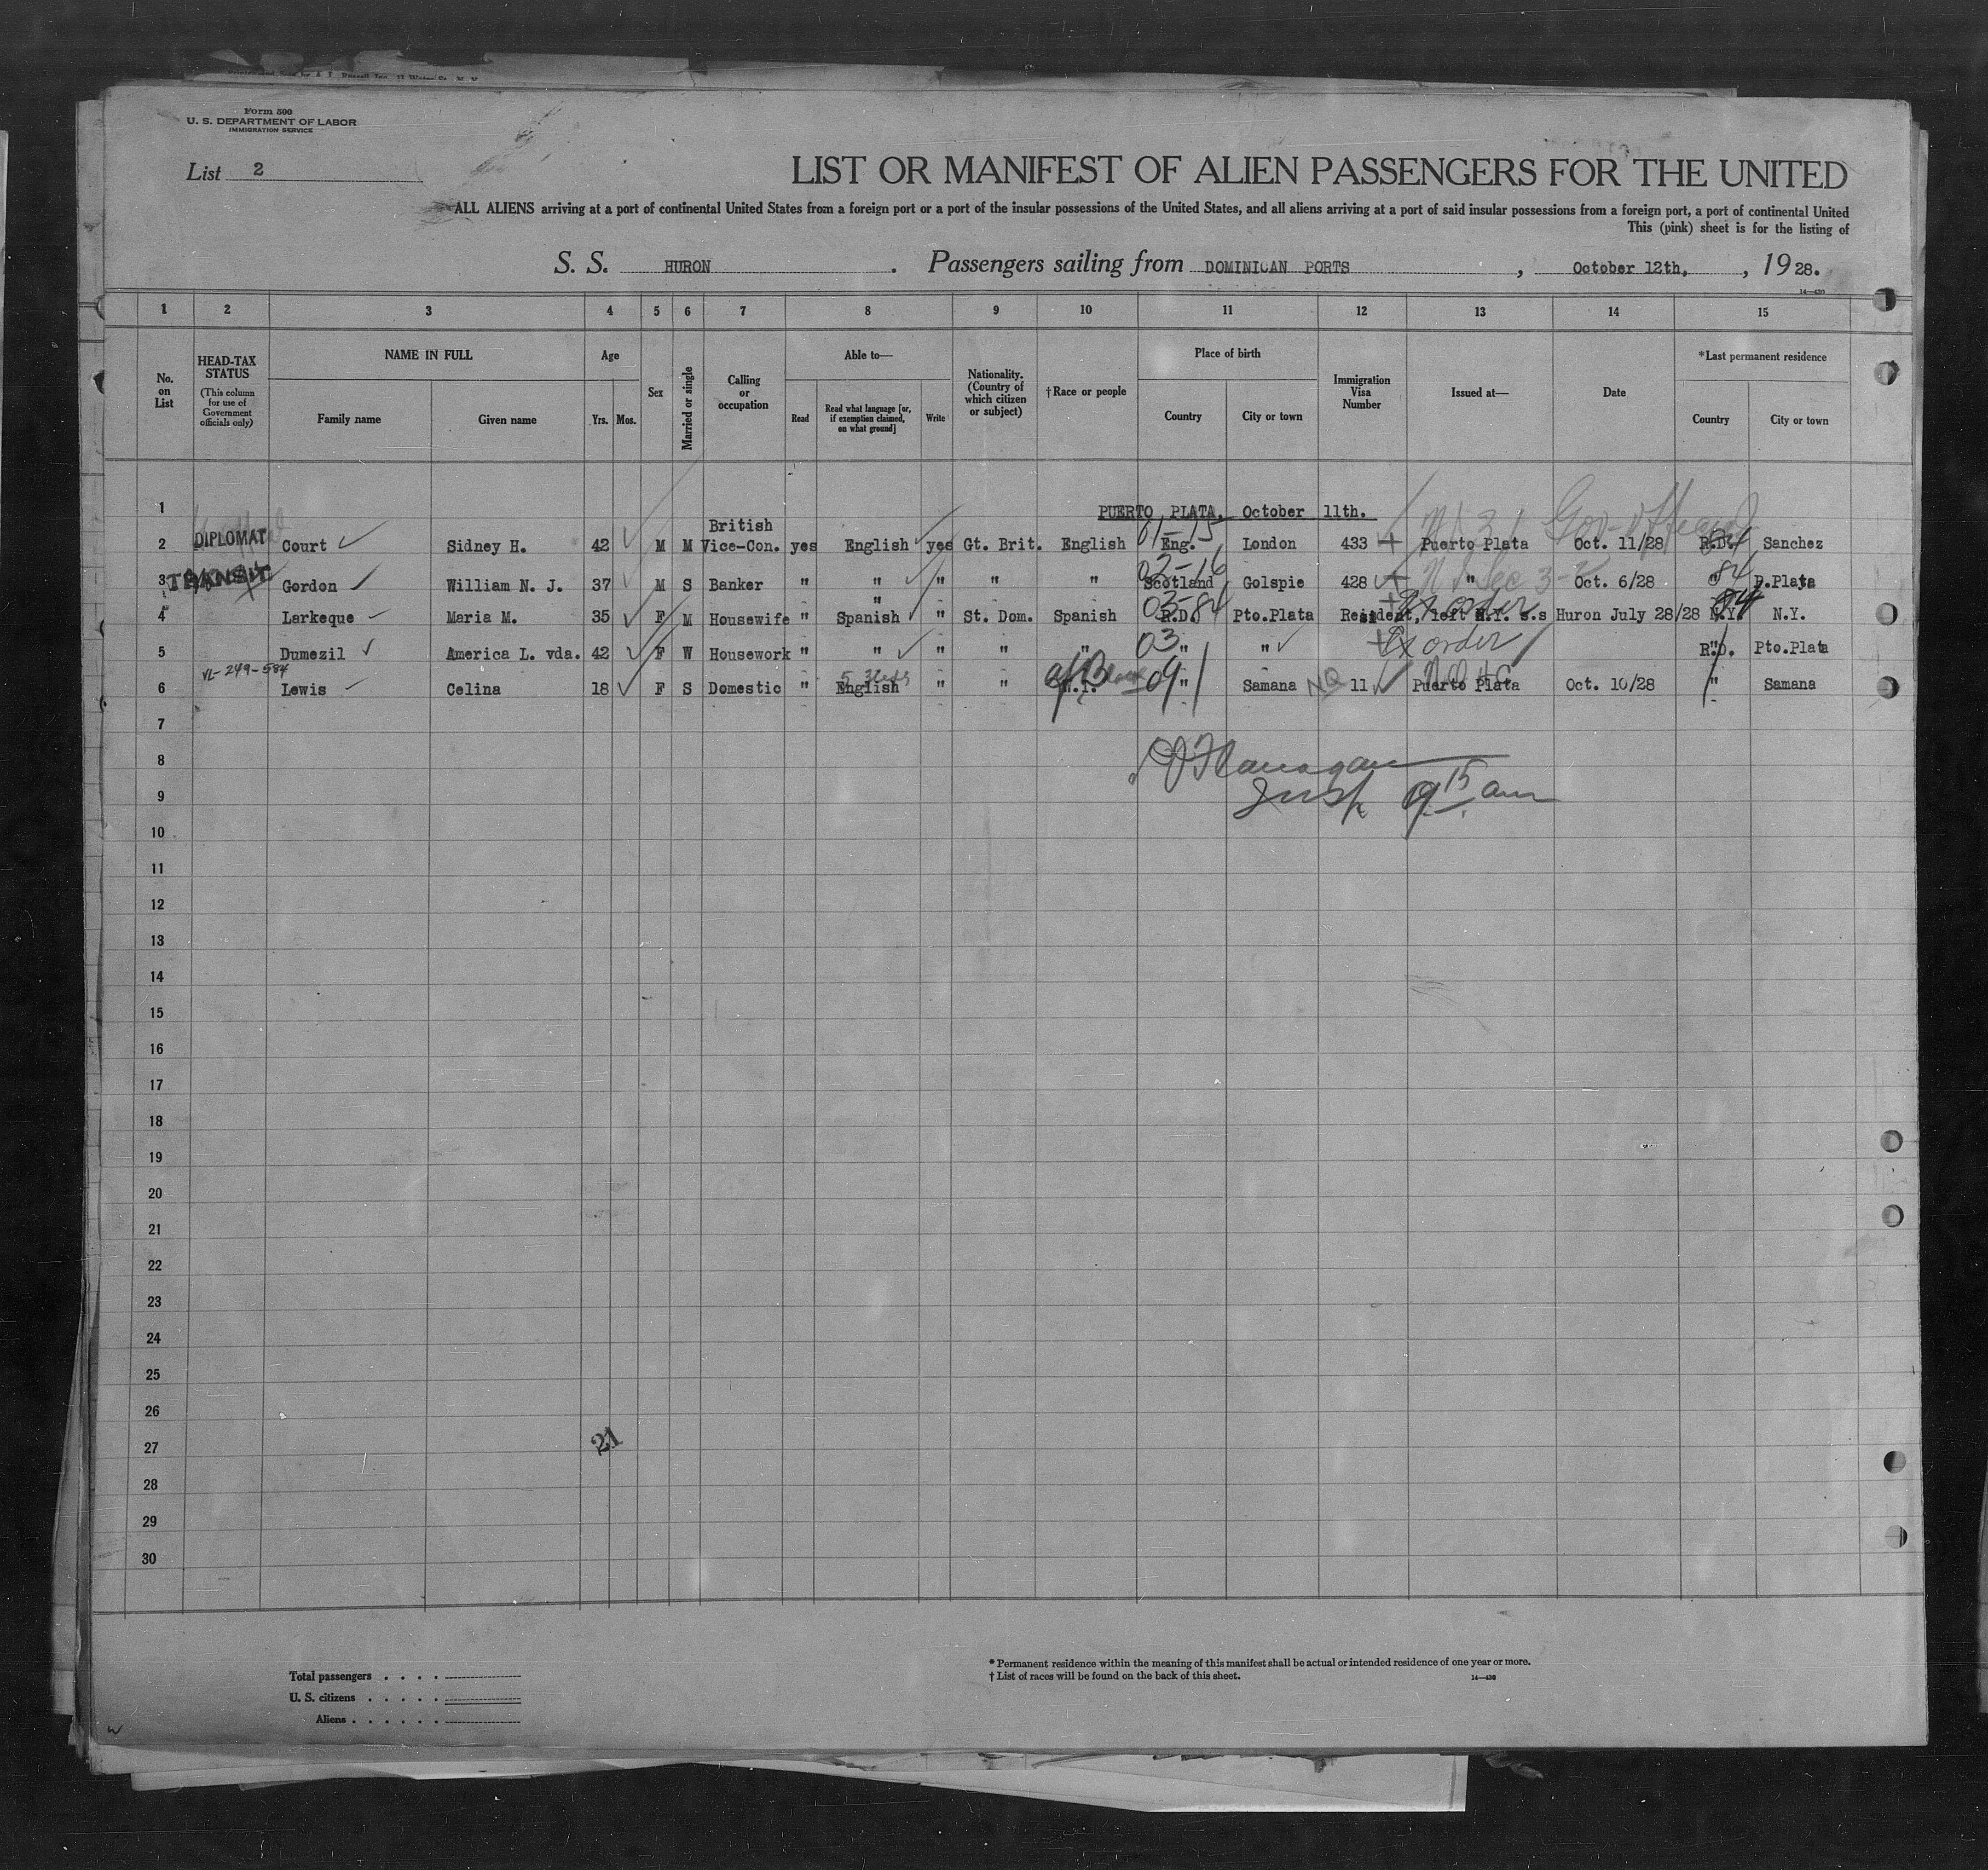 Form 500
U. S. DEPARTMENT OF LABOR
IMMIGRATION SERVICE
List 2
LIST OR MANIFEST OF ALIEN PASSENGERS FOR THE UNITED
ALL ALIENS arriving at a port of continental United States from a foreign port or a port of the insular possessions of the United States, and all aliens arriving at a port of said insular possessions from a foreign port, a port of continental United
This (pink) sheet is for the listing of
S. S. HURON. Passengers sailing from DOMINICAN PORTS, October 12th,, 1928.
1 2 3 4 5 6 7 8 9 10 11 12 13 14 15
No. on List
HEAD-TAX STATUS (This column for use of Government officials only)
NAME IN FULL Family name Given name
Age Yrs. Mos.
Sex
Married or single
Calling or occupation
Able to— Read Read what language [or, if exemption claimed, on what ground] Write
Nationality. (Country of which citizen or subject)
†Race or people
Place of birth Country City or town
Immigration Visa Number
Issued at—
Date
*Last permanent residence Country City or town
1 PUERTO PLATA, October 11th.
2 DIPLOMAT Court Sidney H. 42 M M British Vice-Con. yes English yes Gt. Brit. English 01-15 Eng. London 433 Puerto Plata Gov. Official Oct. 11/28 R.D. Sanchez
3 TRANSIT Gordon William N. J. 37 M S Banker " " " " " 02-16 Scotland Golspie 428 " Oct. 6/28 " 84 P.Plata
4 Larkeque Maria M. 35 F M Housewife " " Spanish " St. Dom. Spanish 03-84 R.D. Pto.Plata Resident, left N.Y. s.s Huron July 28/28 N.Y. N.Y.
5 Dumezil America L. vda. 42 F W Housework " " " " " 03 " " Ex order R.D. Pto.Plata
VL-249-584
6 Lewis Celina 18 F S Domestic " English " " W.I. 09 " Samana NQ 11 Puerto Plata Oct. 10/28 " Samana
7
8 Flanagan
9 Insp. 9 15 am
10
11
12
13
14
15
16
17
18
19
20
21
22
23
24
25
26
27 21
28
29
30
Total passengers . . . .
U. S. citizens . . . . .
Aliens . . . . . .
* Permanent residence within the meaning of this manifest shall be actual or intended residence of one year or more.
† List of races will be found on the back of this sheet.